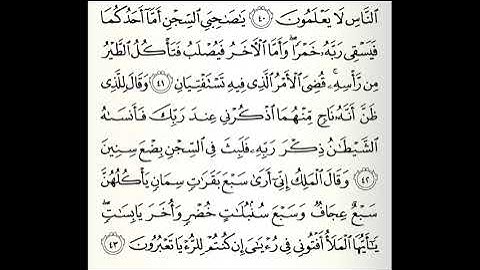 ٱلنَّاسِ لَا يَعْلَمُونَ ٤٠ يَٰصَىٰحِبَىِ ٱلسِّجْنِ أَمَّآ أَحَدُكُمَا
فَيَسْقِى رَبَّهُۥ خَمْرًا ۖ وَأَمَّا ٱلْءَاخَرُ فَيُصْلَبُ فَتَأْكُلُ ٱلطَّيْرُ
مِن رَّأْسِهِۦ ۚ قُضِىَ ٱلْأَمْرُ ٱلَّذِى فِيهِ تَسْتَفْتِيَانِ ٤١ وَقَالَ لِلَّذِى
ظَنَّ أَنَّهُۥ نَاجٍ مِّنْهُمَا ٱذْكُرْنِى عِندَ رَبِّكَ فَأَنسَىٰهُ
ٱلشَّيْطَٰنُ ذِكْرَ رَبِّهِۦ فَلَبِثَ فِى ٱلسِّجْنِ بِضْعَ سِنِينَ
٤٢ وَقَالَ ٱلْمَلِكُ إِنِّىٓ أَرَىٰ سَبْعَ بَقَرَٰتٍ سِمَانٍ يَأْكُلُهُنَّ
سَبْعٌ عِجَافٌ وَسَبْعَ سُنۢبُلَٰتٍ خُضْرٍ وَأُخَرَ يَابِسَٰتٍ ۖ
يَٰٓأَيُّهَا ٱلْمَلَأُ أَفْتُونِى فِى رُءْيَٰىَ إِن كُنتُمْ لِلرُّءْيَا تَعْبُرُونَ ٤٣